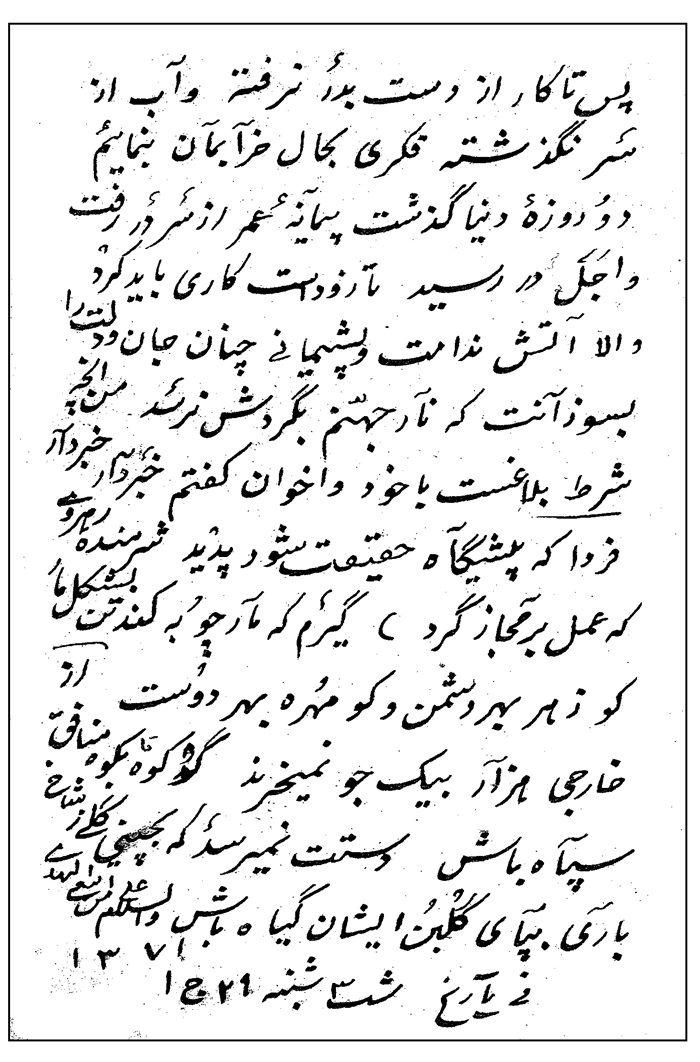 پس تا کار از دست بدر نرفته و آب از
سر نگذشته فکری بحال خرابمان بنمایم
دو روزهٔ دنیا گذشت پیمانهٔ عمر از سر در رفت
و اجل در رسید تا زود است کاری باید کرد
والا آتش ندامت و پشیمانی چنان جان و دلت را
بسوزاند که نار جهنم بگردش نرسد من آنچه
شرط بلاغست با خود و اخوان گفتم خبردار خبردار
فردا که پیشگاه حقیقت شود پدید شرمنده رهروی
که عمل بر مجاز کرد ) گیرم که مار چوبه کند تن بشکل مار
کو زهر بهر دشمن و کو مهره بهر دوست از
خارجی هزار بیک جو نمیخرند گو کوه تا بکوه منافق
سپاه باش دستت نمیرسد که بچینی گلی ز شاخ
باری بپای گلبن ایشان گیاه باش والسلام علی من اتبع الهدی
فی تاریخ شب ۳ شنبه ۲۹ ج ۱ ۱۳۷۱